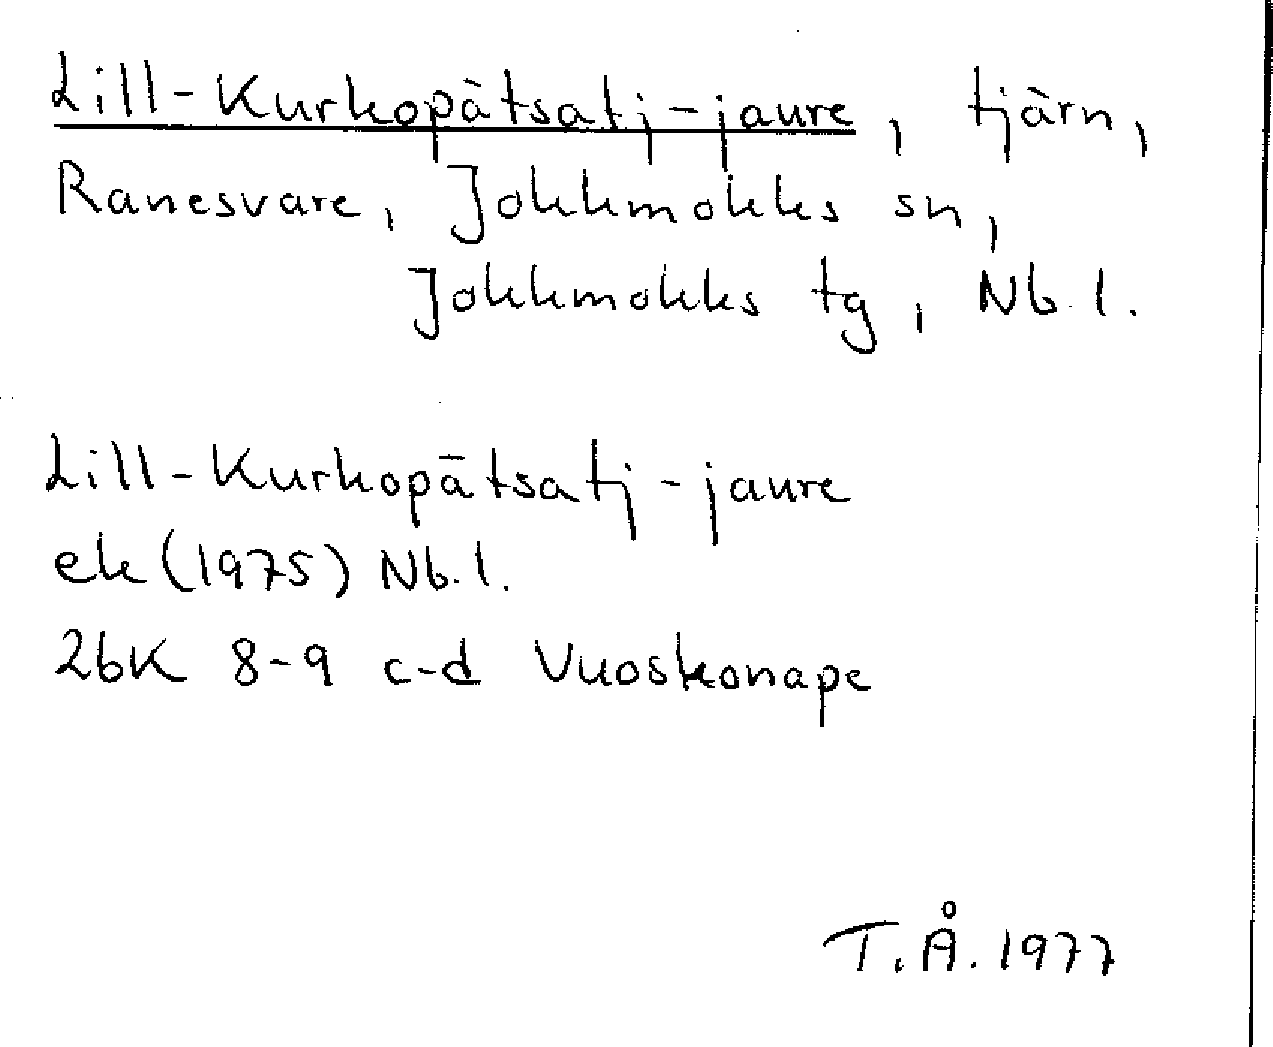 Lill-Kurkopätsatj-jaure, tjärn,
Ranesvare, Jokkmokks sn,
Jokkmokks tg, Nb.l.
Lill-Kurkopätsatj-jaure
ek (1975) Nb.l.
26K 8-9 c-d Vuoskonape
T.Å. 1977